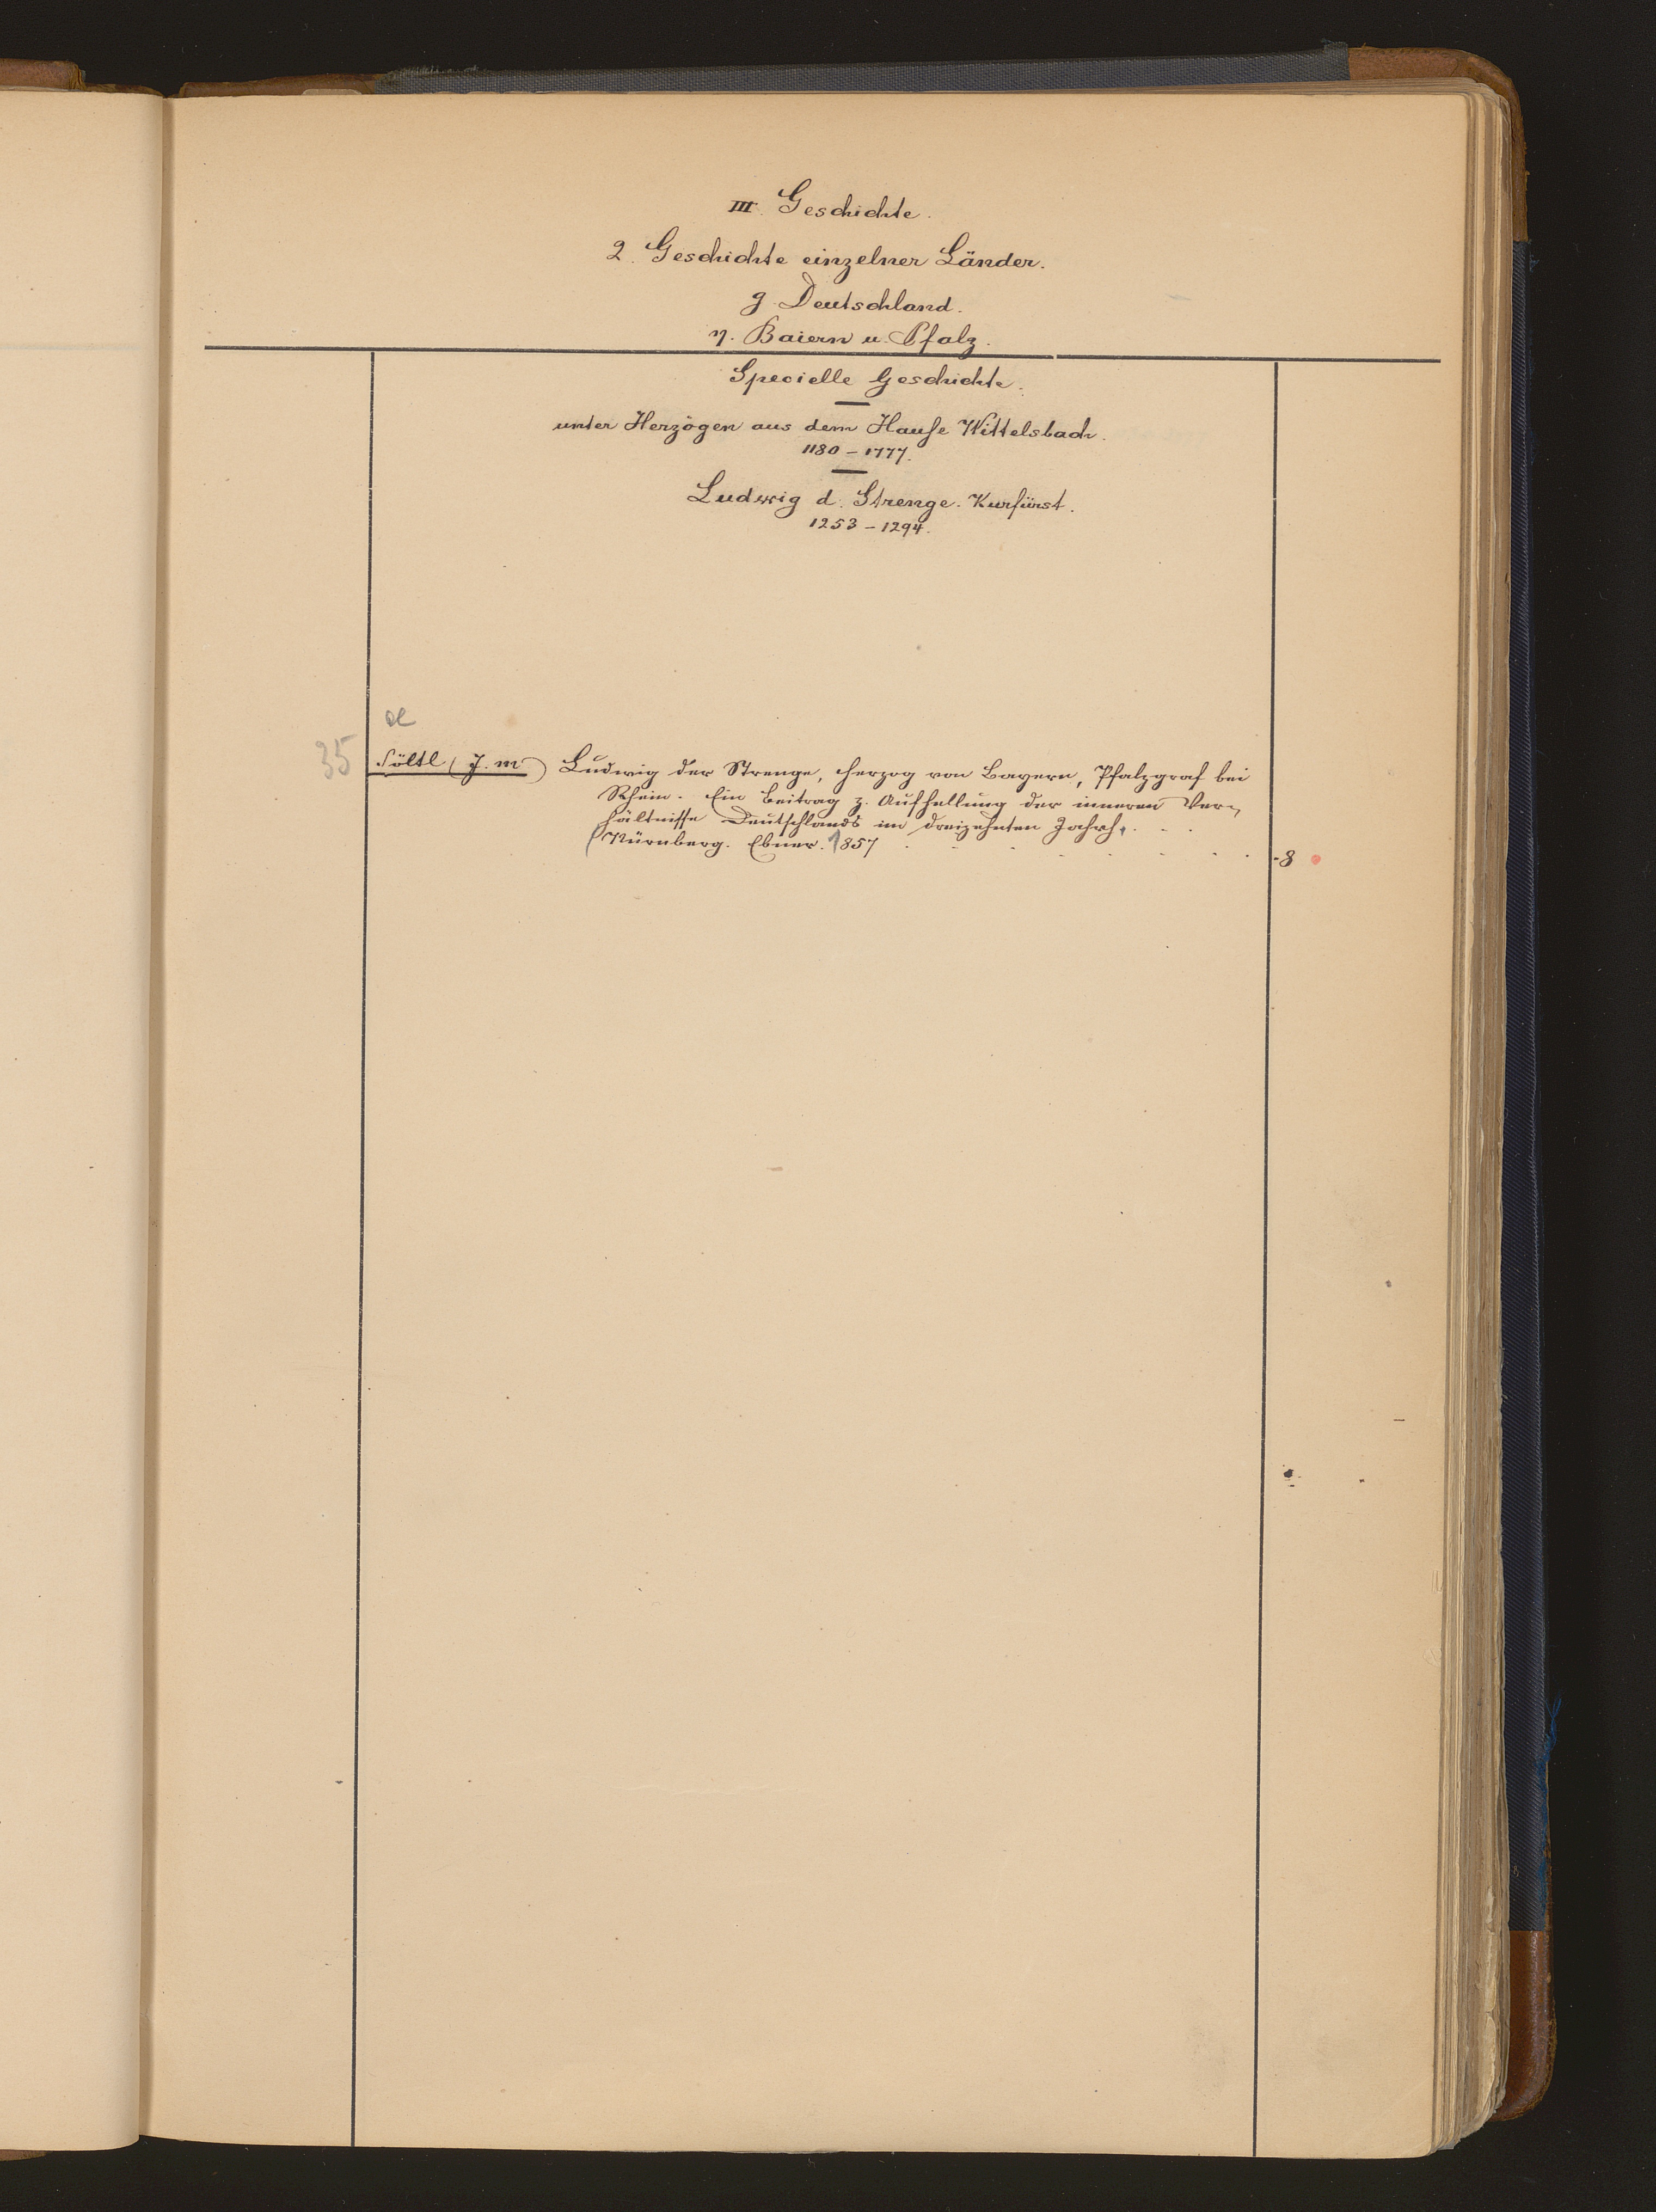 III. Geschichte.
2. Geschichte einzelner Länder.
g. Deutschland.
η. Baiern u. Pfalz.
Specielle Geschichte.
unter Herzögen aus dem Hause Wittelsbach.
1180 – 1777.
Ludwig d. Strenge. Kurfürst.
1253 – 1294.
35 Söltl (J. M.) Ludwig der Strenge, Herzog von Bayern, Pfalzgraf bei
Rhein. Ein Beitrag z. Aufhellung der inneren Ver-
hältnisse Deutschlands im dreizehnten Jahrh. . .
Nürnberg. Ebner. 1857 . . . . . . . . 8